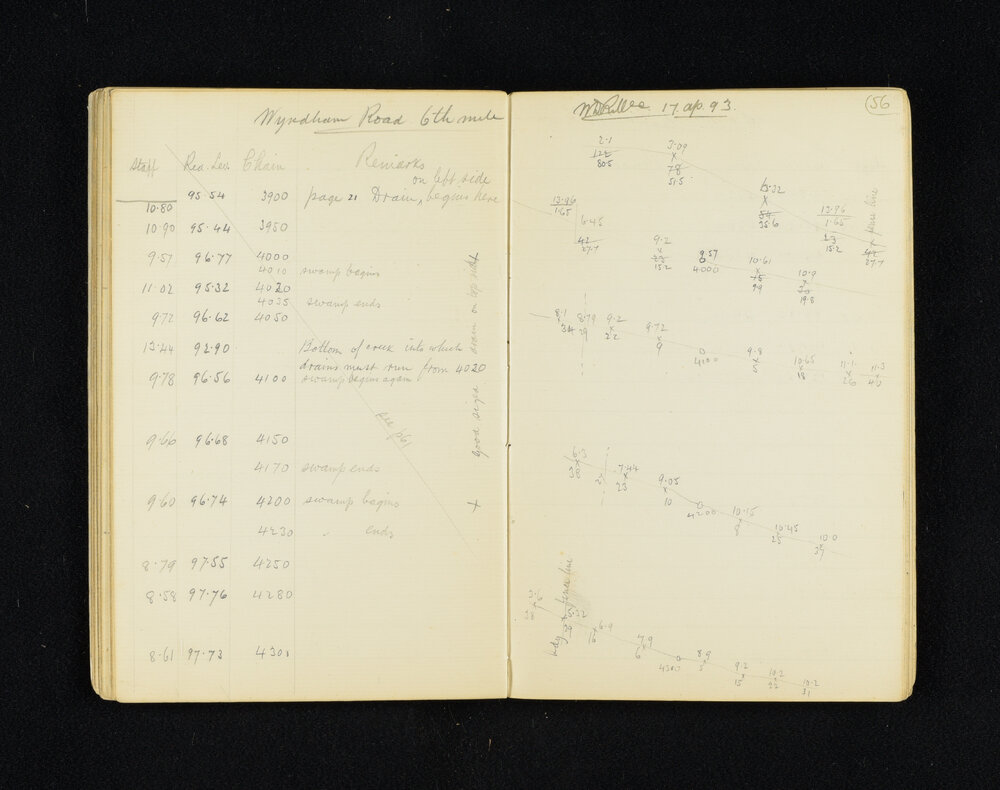 Wyndham Road 6th mile
Staff Rea. Lev. Chain Remarks
on left side
10.80 95.54 3900 page 21 Drain, begins here
10.90 95.44 3950
9.57 96.77 4000
4010 swamp begins
11.02 95.32 4020
4035 swamp ends
9.72 96.62 4050
13.44 92.90 Bottom of creek into which
drains must run from 4020
9.78 96.56 4100 swamp begins again
see p61
9.66 96.68 4150
4170 swamp ends
9.60 96.74 4200 swamp begins
4230 " ends
8.79 97.55 4250
8.58 97.76 4280
8.61 97.73 4300
good sized drain on top side
17 ap. 93.
56
2.1 3.09
122 78
80.5 51.5
6.32
54
35.6
13.96
1.65
13.96
1.65
fence line
6.45 9.2 9.57 10.61 10.9
42 23 4000 15 30
27.7 15.2 99 19.8
23
15.2
42
27.7
8.1 8.79 9.2 9.72 9.8 10.65 11.1 11.3
34 29 22 9 4100 5 18 26 40
6.3 7.44 9.05 10.15 10.45 10.0
38 23 10 4200 8 25 37
bdy & fence line
5.32 6.9 7.9 8.9 9.2 10.2 10.2
16 6 4300 5 15 22 31